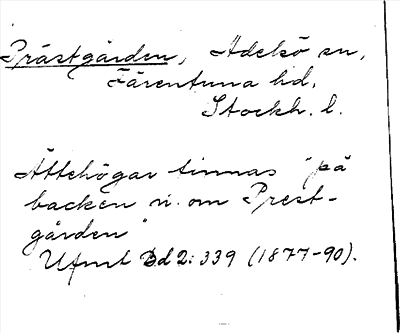 Prästgården, Adelsö sn,
Färentuna hd,
Stockh. l.
Ättehögar finnas "på
backen n. om Prest-
gården"
Ufmt Bd 2: 339 (1877-90).